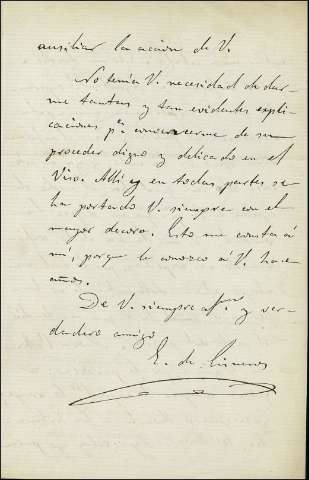 auxiliar la acción de V.
No tenía V. necesidad de dar-
me tantas y tan evidentes expli-
caciones pª convencerme de su
proceder digno y delicado en el
Viso. Allí y en todas partes se
ha portado V. siempre con el
mayor decoro. Esto me consta á
mí, porque le conozco á V. hace
años.
De V. siempre afmo y ver-
dadero amigo
E. de Cisneros